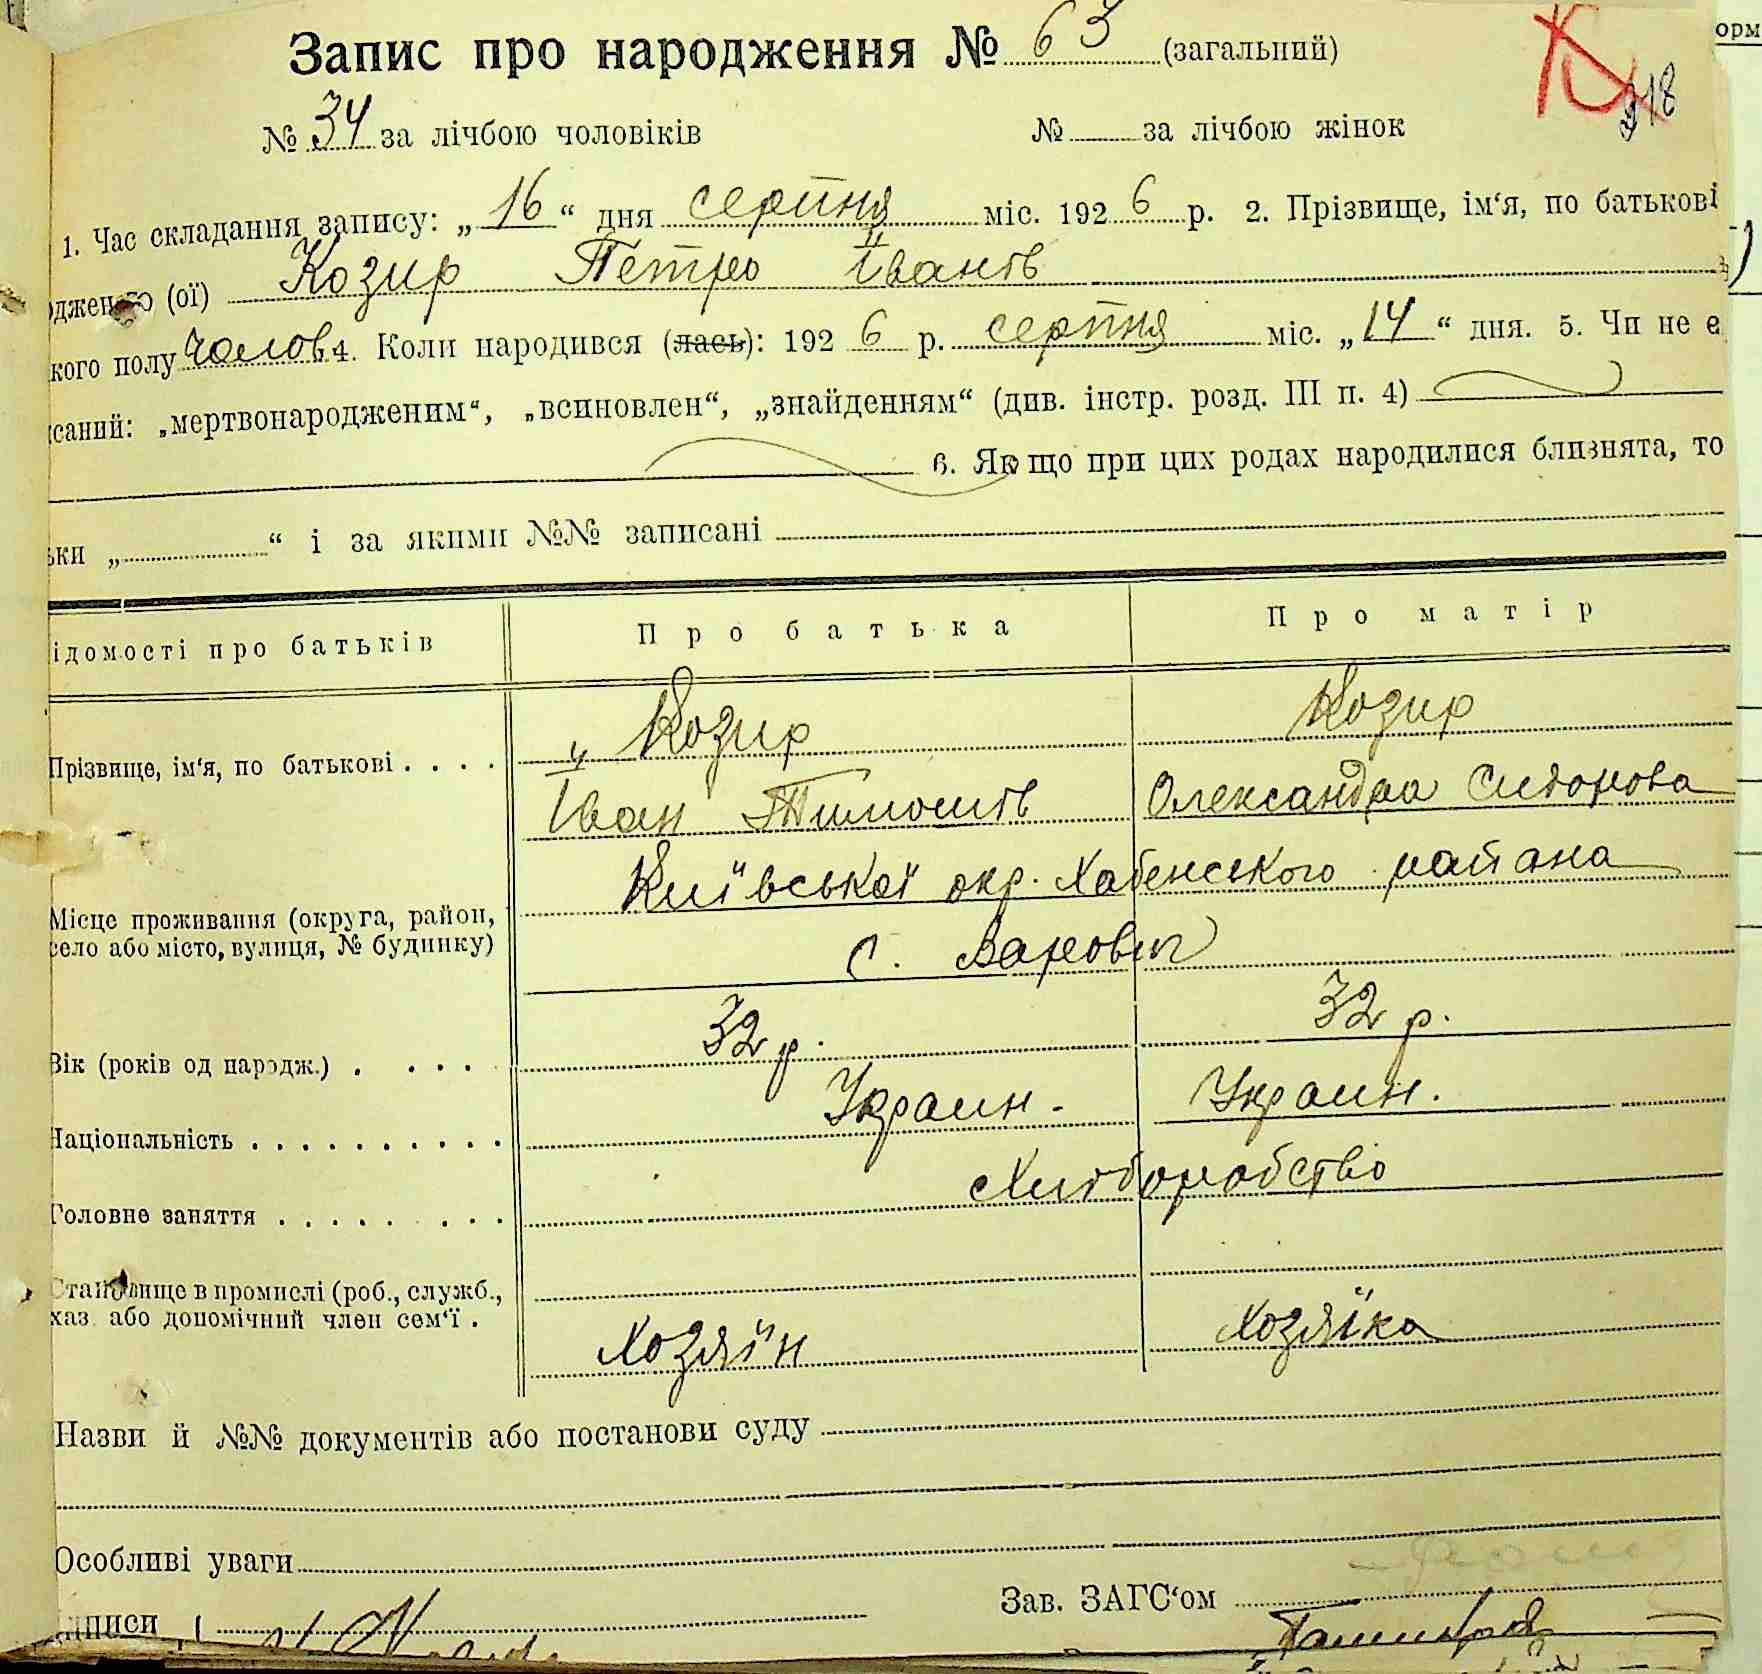 Запис про народження № 63 (загальний)
218
№ 34 за лічбою чоловіків № за лічбою жінок
1. Час складання запису: „16“ дня серпня міс. 1926 р. 2. Прізвище, ім‘я, по батькові
одженого (ої) Козир Петро Іванів
кого полу Чолов. 4. Коли народився (лась): 1926 р. серпня міс. „14“ дня. 5. Чи не є
саний: „мертвонародженим“, „всиновлен“, „знайденням“ (див. інстр. розд. III п. 4)
6. Якщо при цих родах народилися близнята, то
ьки „ “ і за якими №№ записані
ідомості про батьків Про батька Про матір
Козир Козир
Прізвище, ім‘я, по батькові . . . .
Іван Тимошів Олександра Сидорова
Київської окр. Хабенського района
Місце проживання (округа, район,
село або місто, вулиця, № будинку)
с. Варовичі
32 р. 32 р.
Вік (років од народж.) . . . .
Украин. Украин.
Національність . . . . . . . . . .
Хліборобство
Головне заняття . . . . . . . . .
Становище в промислі (роб., служб.,
хаз. або допомічний член сем‘ї .
Хозяїн Хозяїка
Назви й №№ документів або постанови суду
Особливі уваги
Зав. ЗАГС‘ом
ідписи